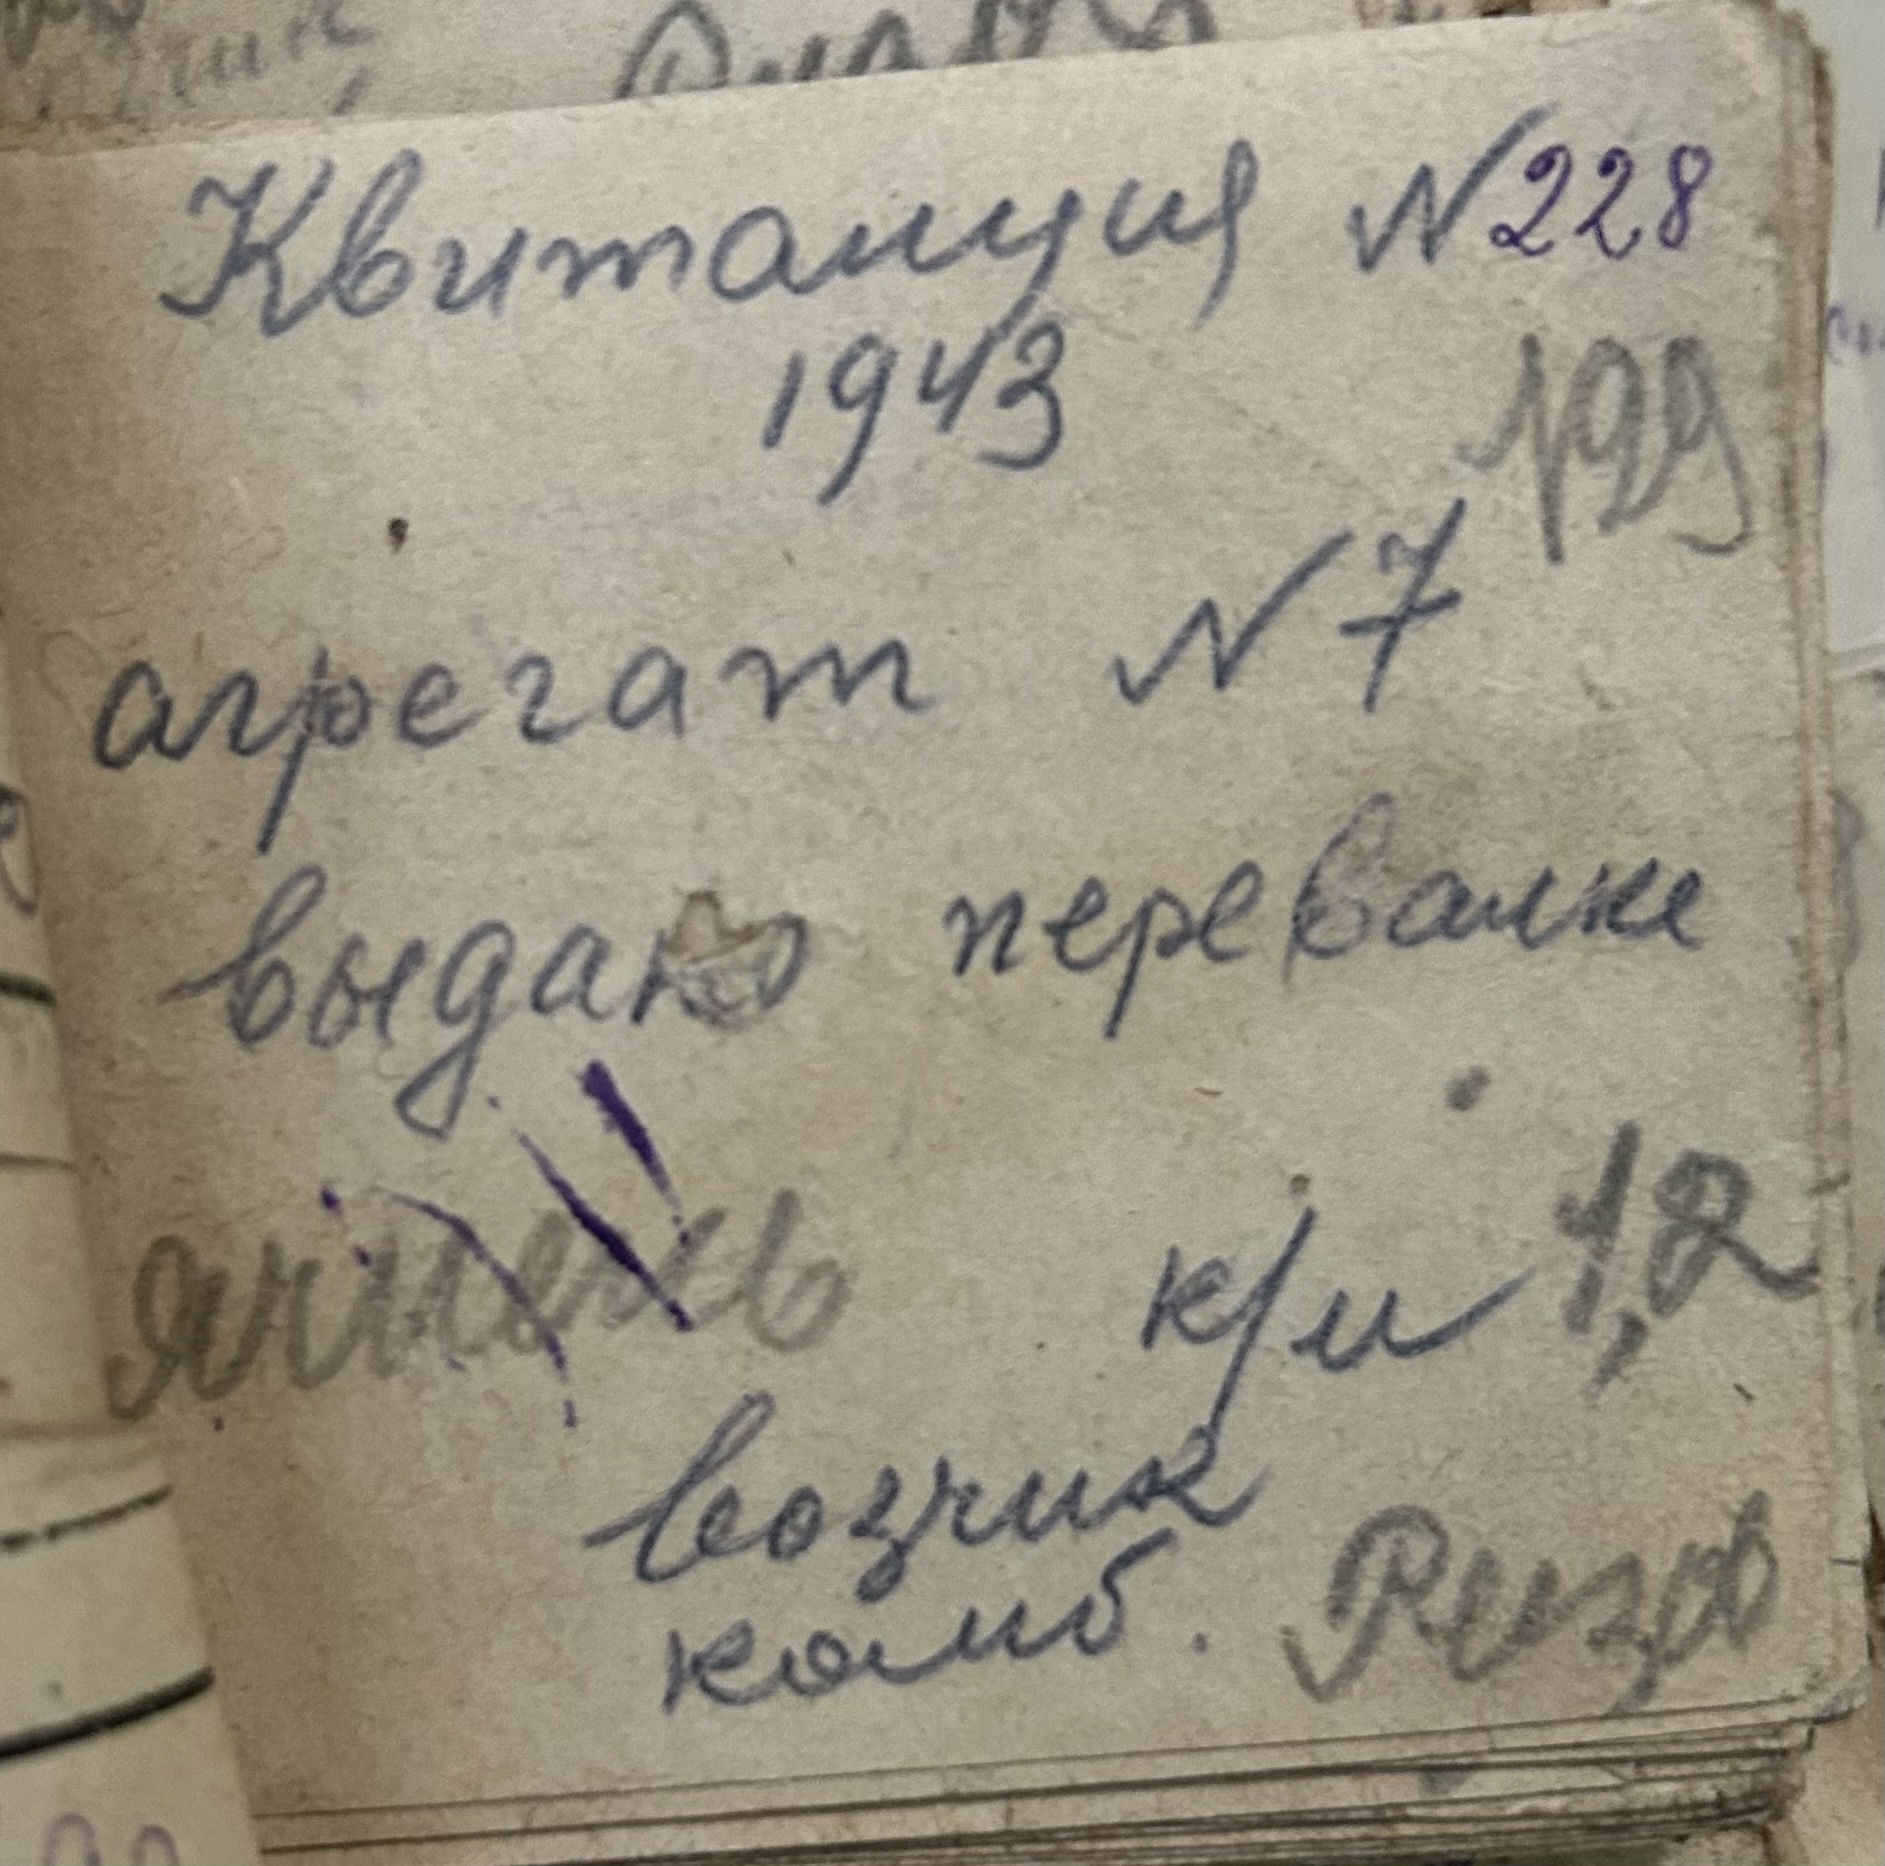 Квитанция N 228
1943
199
агрегат N 7
выдано перевалке
ячмень к/м 1,2
возчик
комб. Ризов